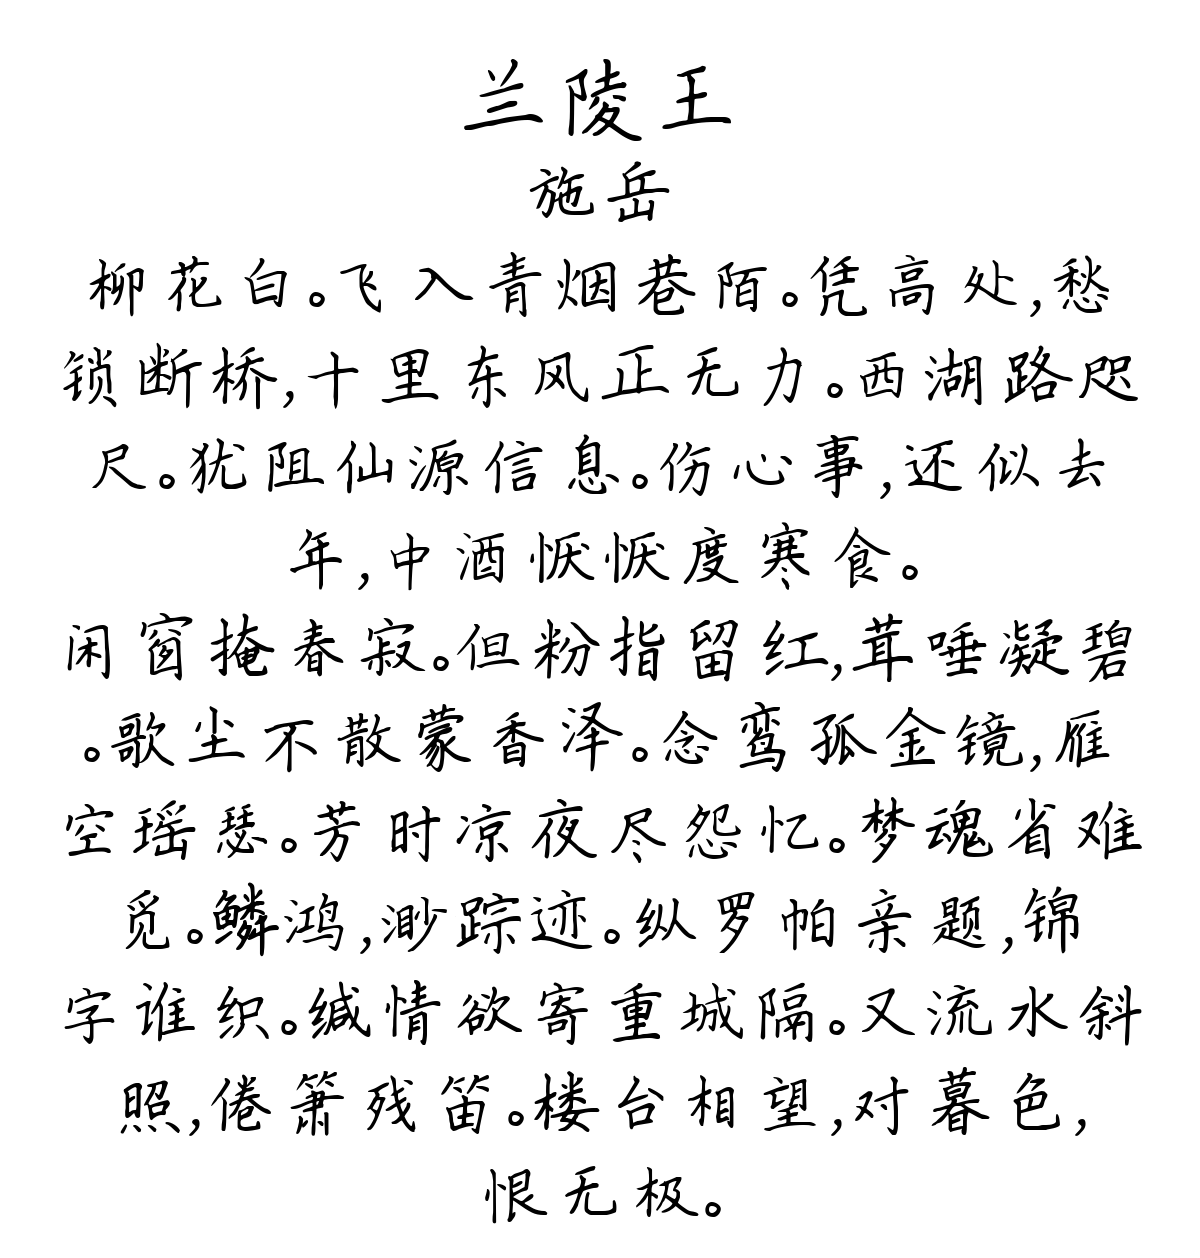 兰陵王
施岳
柳花白。飞入青烟巷陌。凭高处,愁
锁断桥,十里东风正无力。西湖路咫
尺。犹阻仙源信息。伤心事,还似去
年,中酒恹恹度寒食。
闲窗掩春寂。但粉指留红,茸唾凝碧
。歌尘不散蒙香泽。念鸾孤金镜,雁
空瑶瑟。芳时凉夜尽怨忆。梦魂省难
觅。鳞鸿,渺踪迹。纵罗帕亲题,锦
字谁织。缄情欲寄重城隔。又流水斜
照,倦箫残笛。楼台相望,对暮色,
恨无极。